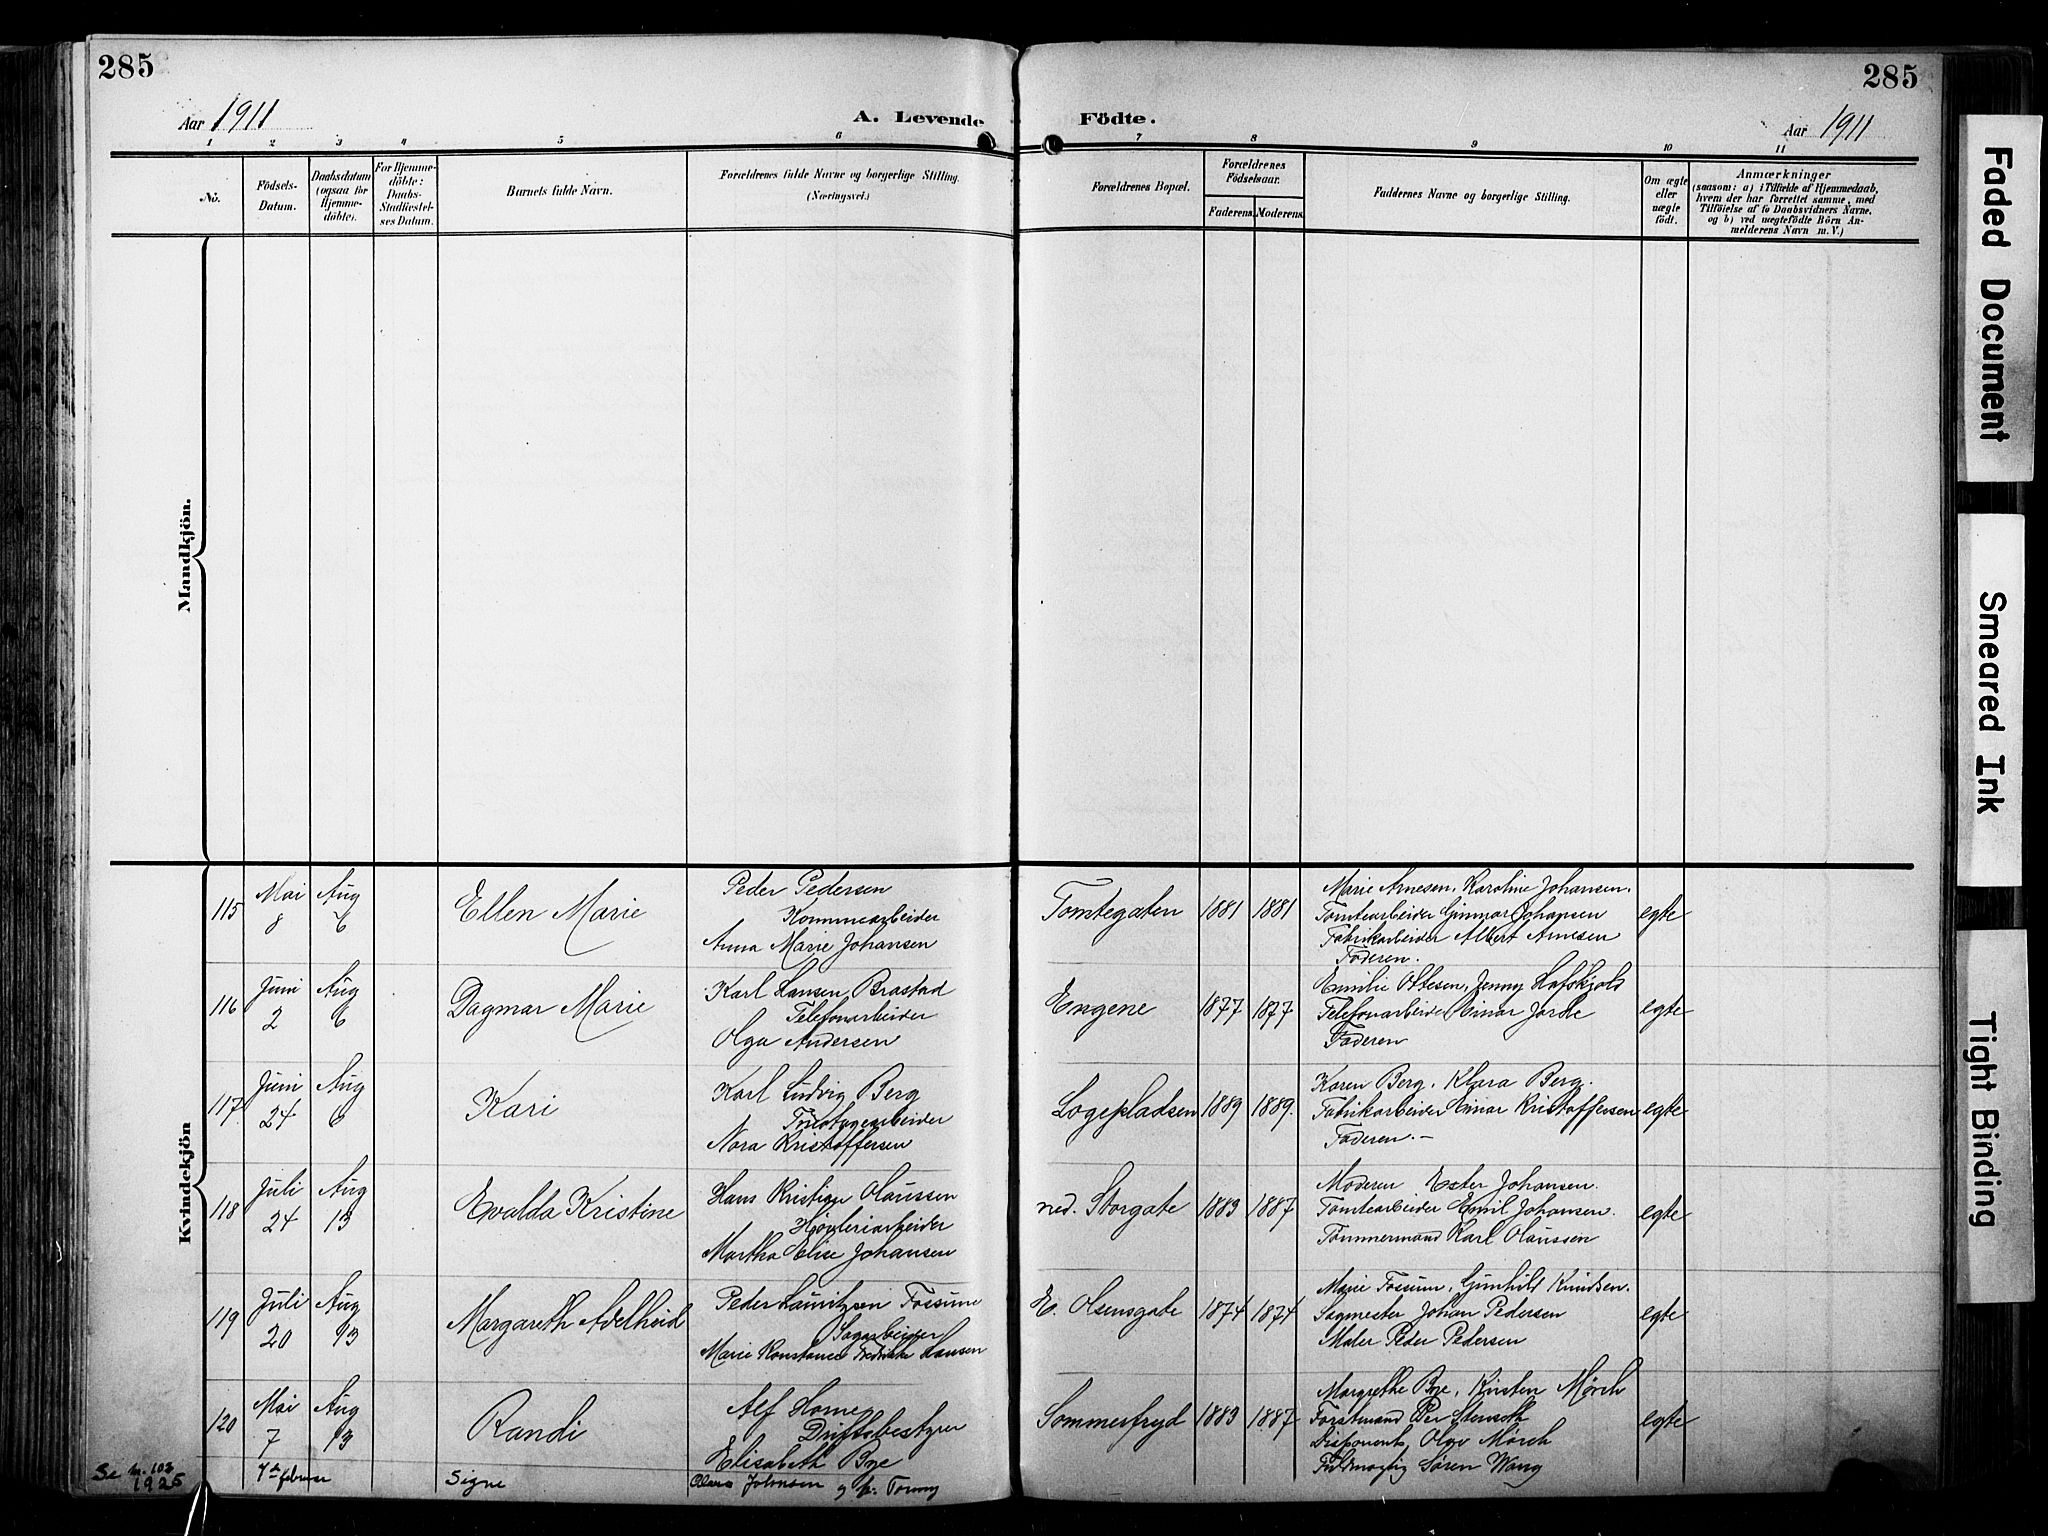 285
285
Aar 1911
A. Levende Födte.
Aar 1911
1 2 3 4 5 6 7 8 9 10 11
No.
Födsels-Datum.
Daabsdatum (ogsaa for Hjemmedöbte).
For Hjemmedöbte: Daabs-Stadfæstelses Datum.
Barnets fulde Navn.
Forældrenes fulde Navne og borgerlige Stilling.
(Næringsvei.)
Forældrenes Bopæl.
Forældrenes Födselsaar.
Faderens. Moderens.
Faddernes Navne og borgerlige Stilling.
Om ægte eller uægte födt.
Anmærkninger
(saasom: a) i Tilfælde af Hjemmedaab,
hvem der har forrettet samme, med
Tilföielse af to Daabsvidners Navne,
og b) ved uægtefödte Börn An-
melderens Navn m. V.)
Mandkjön.
Kvindekjön
115 Mai 8 Aug 6 Ellen Marie
Peder Pedersen
Anna Marie Johansen
Tomtegaten 1881 1881
Marie Arnesen, Karoline Johansen.
Tomtearbeider Johansen
Fabrikarbeider Albert Arnesen
Faderen.
egte
116 Juni 2 Aug 6 Dagmar Marie
Karl Hansen Brastad
Telefonarbeider
Olga Andersen
Engene 1877 1877
Emilie Ottesen, Jenny
Telefonarbeider Einar Jorde
Faderen
egte
117. Juni 24 Aug 6 Kari
Karl Ludvig Berg
Nora Kristoffersen
Logepladsen 1889 1889.
Karen Berg, Klara Berg.
Fabrikarbeider Einar Kristoffersen
Faderen.–
egte
118 Juli 24 Aug 13 Evalda Kristine
Hans Kristian Olaussen
Høvleriarbeider
Martha Elise Johansen
ned. Storgate 1883 1887
Moderen Ester Johansen.
Tomtearbeider Emil Johansen.
Tømmermand Karl Olaussen
egte
119 Juli 20 Aug 13 Margareth Adelheid
Peder Lauritzen Fossum
Sagarbeider
Marie Konstance Fredrikke Hansen
E. Olsensgate 1874 1874
Marie Fossum, Gunhild Knudsen.
Sagmester Johan Pedersen
Maler Peder Pedersen
egte
120 Mai 7 Aug 13 Randi
Alf Horne
Driftsbestyrer
Elisabeth Bye
Sommerfryd 1883 1887
Margrethe Bye, Kirsten Mørch
Forstmand Per Stenseth
Disponent Olav Mørch
Fuldmægtig Søren Wang
egte
Se nr. 103
1925
7de februar
Signe
Johansen og
Faded Document
Smeared Ink
Tight Binding